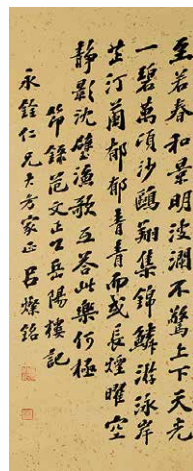 至若春和景明波瀾不驚上下天光
一碧萬頃沙鷗翔集錦鱗游泳岸
芷汀蘭郁郁青青而或長煙曜空
靜影沈璧漁歌互答此樂何極
節錄范文正公岳陽樓記
永銓仁兄大方家正 呂燦銘